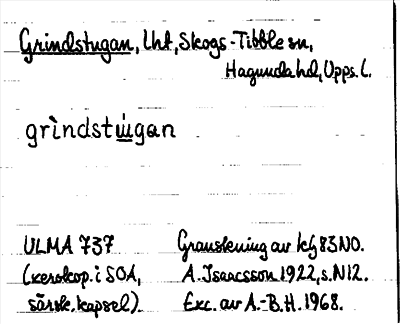 Grindstugan, Lht, Skogs-Tibble sn,
Hagunda hd, Upps. l.
grìndstú̲gan
ULMA 737 Granskning av kbl 83 NO.
(xerokop. i SOA, A. Isaacsson 1922, s. N12.
särsk. kapsel). Exc. av A.-B. H. 1968.